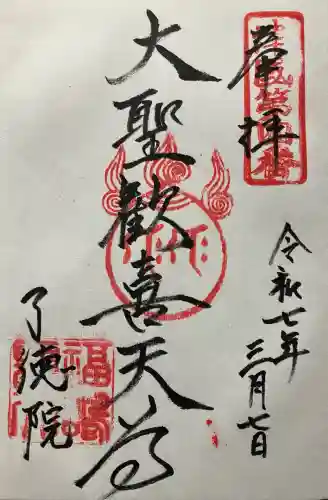 奉拝
令和七年
三月七日
大聖歓喜天尊
了徳院